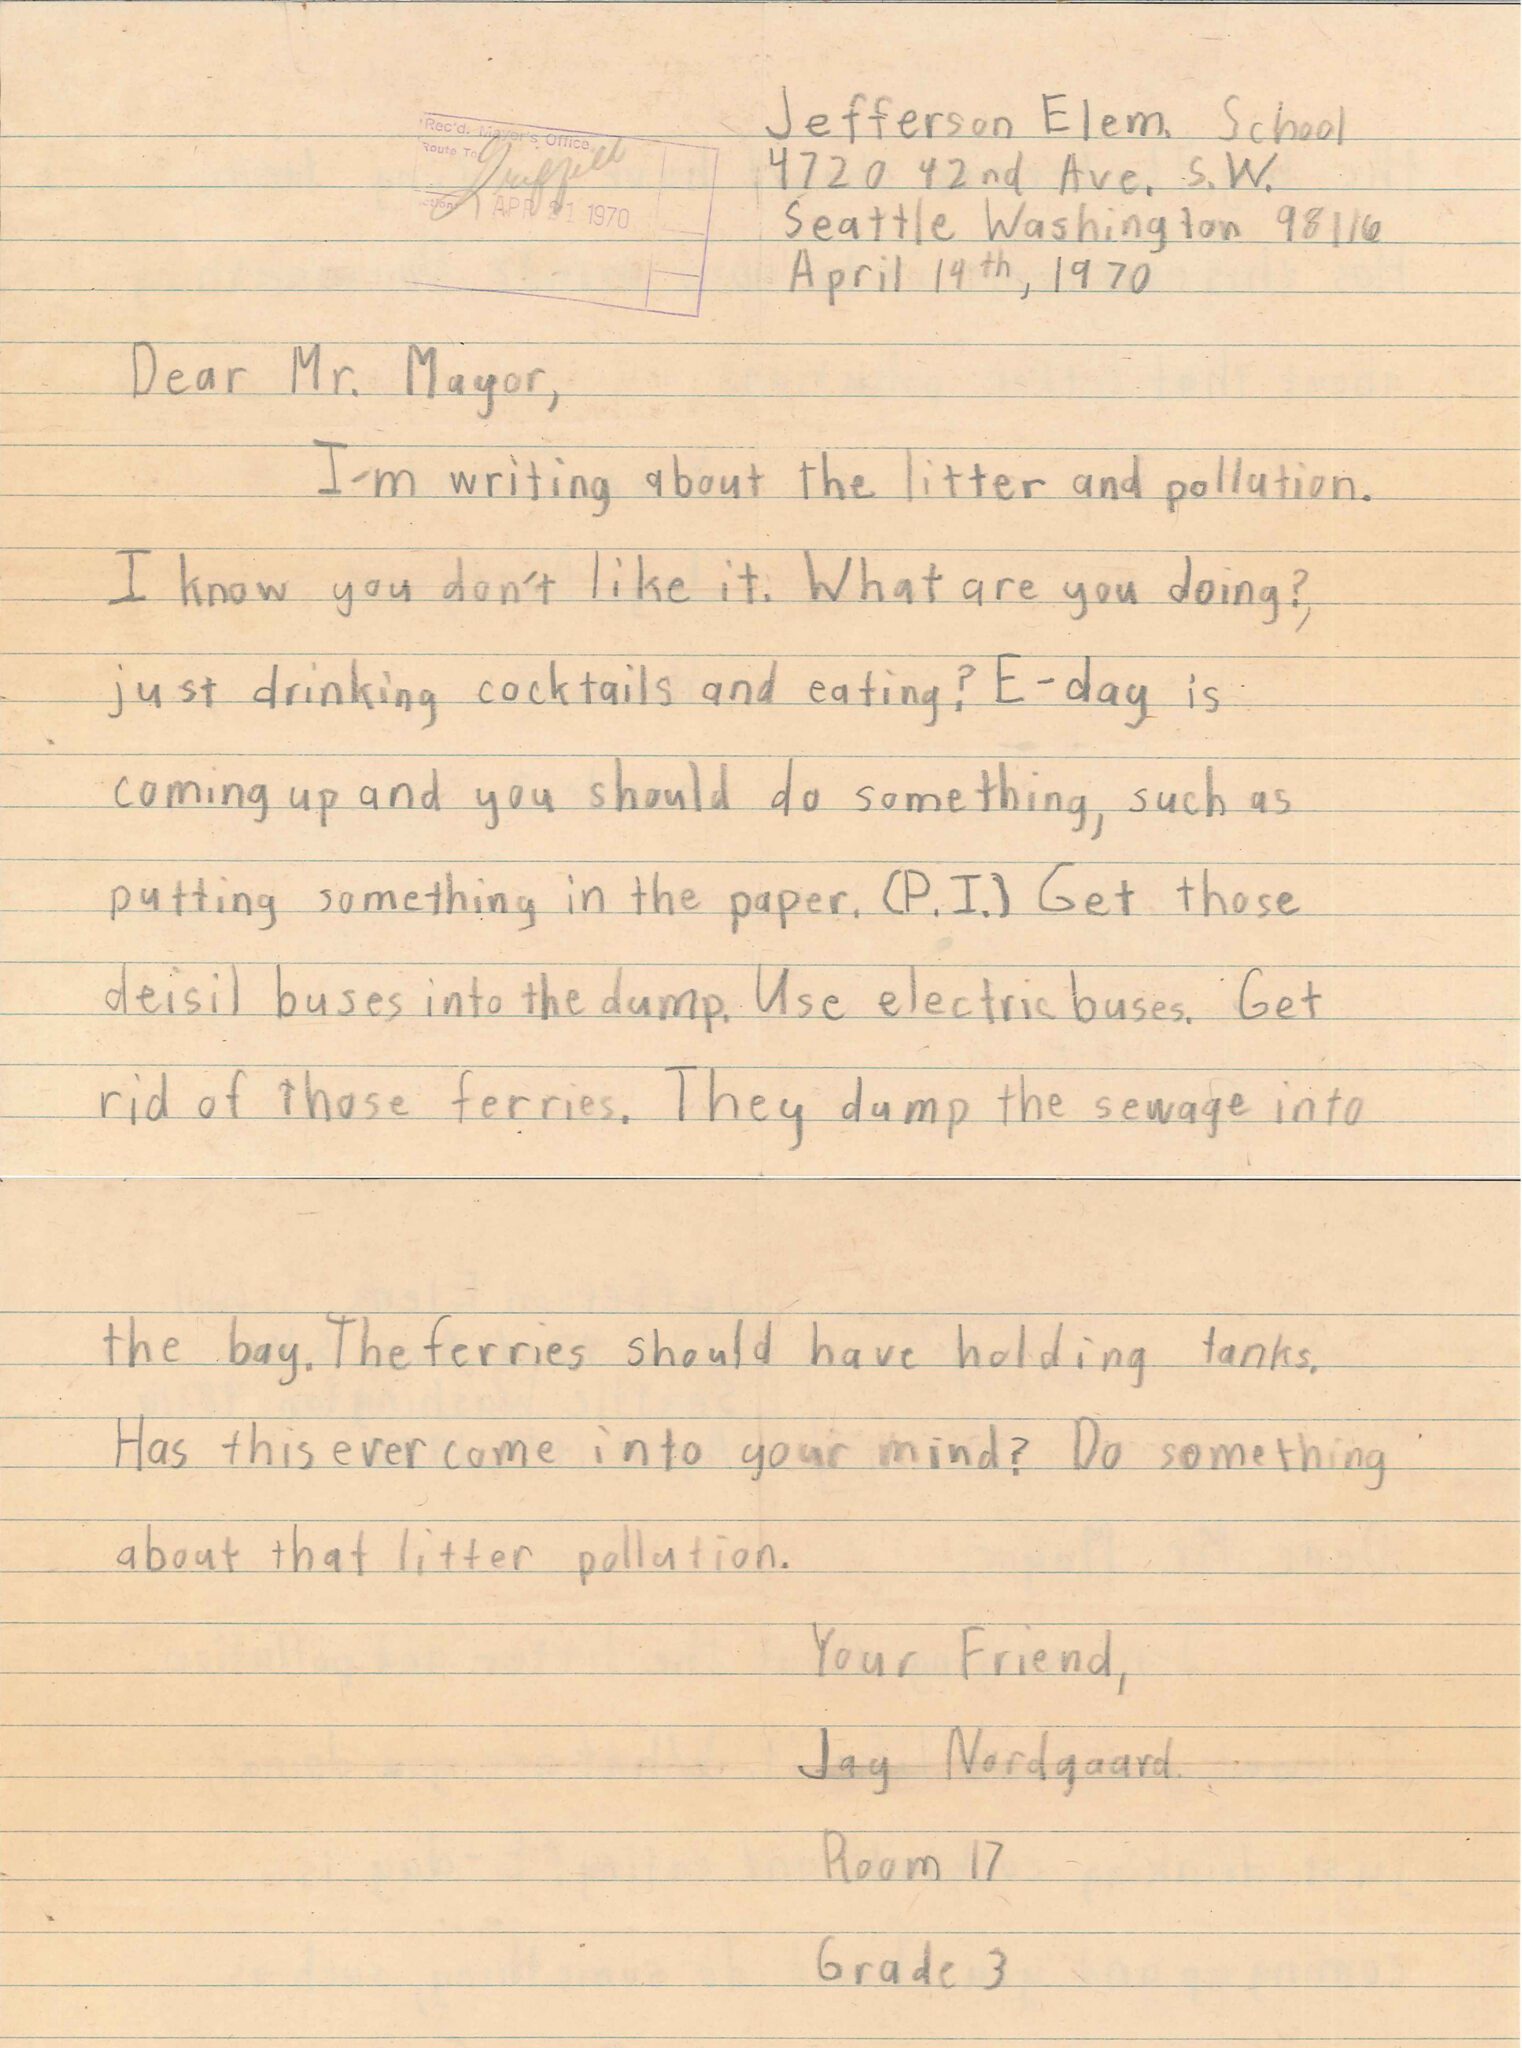 Jefferson Elem. School
4720 42nd Ave. S.W.
Seattle Washington 98116
April 14th, 1970
Rec'd. Mayor's Office
Route To
APR 21 1970
Dear Mr. Mayor,
I-m writing about the litter and pollution.
I know you don't like it. What are you doing?,
just drinking cocktails and eating? E-day is
coming up and you should do something, such as
putting something in the paper. (P.I.) Get those
deisil buses into the dump. Use electric buses. Get
rid of those ferries. They dump the sewage into
the bay. The ferries should have holding tanks.
Has this ever come into your mind? Do something
about that litter pollution.
Your Friend,
Jay Nordgaard
Room 17
Grade 3